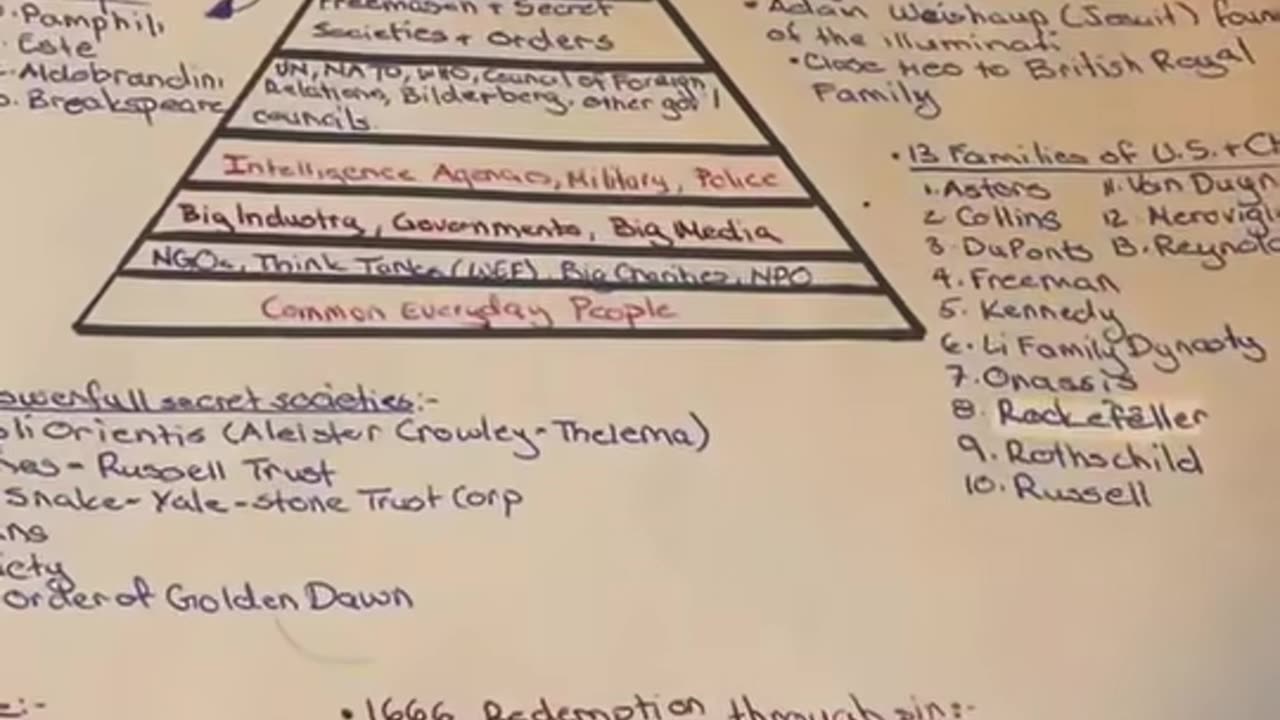 Pamphili
Este
Aldobrandini
Breakspeare
Freemason + Secret
Societies + Orders
UN, NATO, WHO, Council of Foreign
Relations, Bilderberg, other gov't
councils.
Intelligence Agencies, Military, Police
Big Industry, Governments, Big Media
NGOs, Think Tanks (WEF), Big Charities, NPO
Common Everyday People
• Adam Weishaup (Jesuit) foun
of the illuminati
• Close ties to British Royal
Family
• 13 Families of U.S. + Ch
1. Astors 11. Van Duyn
2 Collins 12. Merovigi
3 DuPonts 13. Reynold
4. Freeman
5. Kennedy
6. Li Family Dynasty
7. Onassis
8. Rockefeller
9. Rothschild
10. Russell
owerfull secret societies:-
li Orientis (Aleister Crowley - Thelema)
nes - Russell Trust
Snake - Yale - stone Trust Corp
ns
iety
order of Golden Dawn
e:-
• 1666 Redemption through sin:-